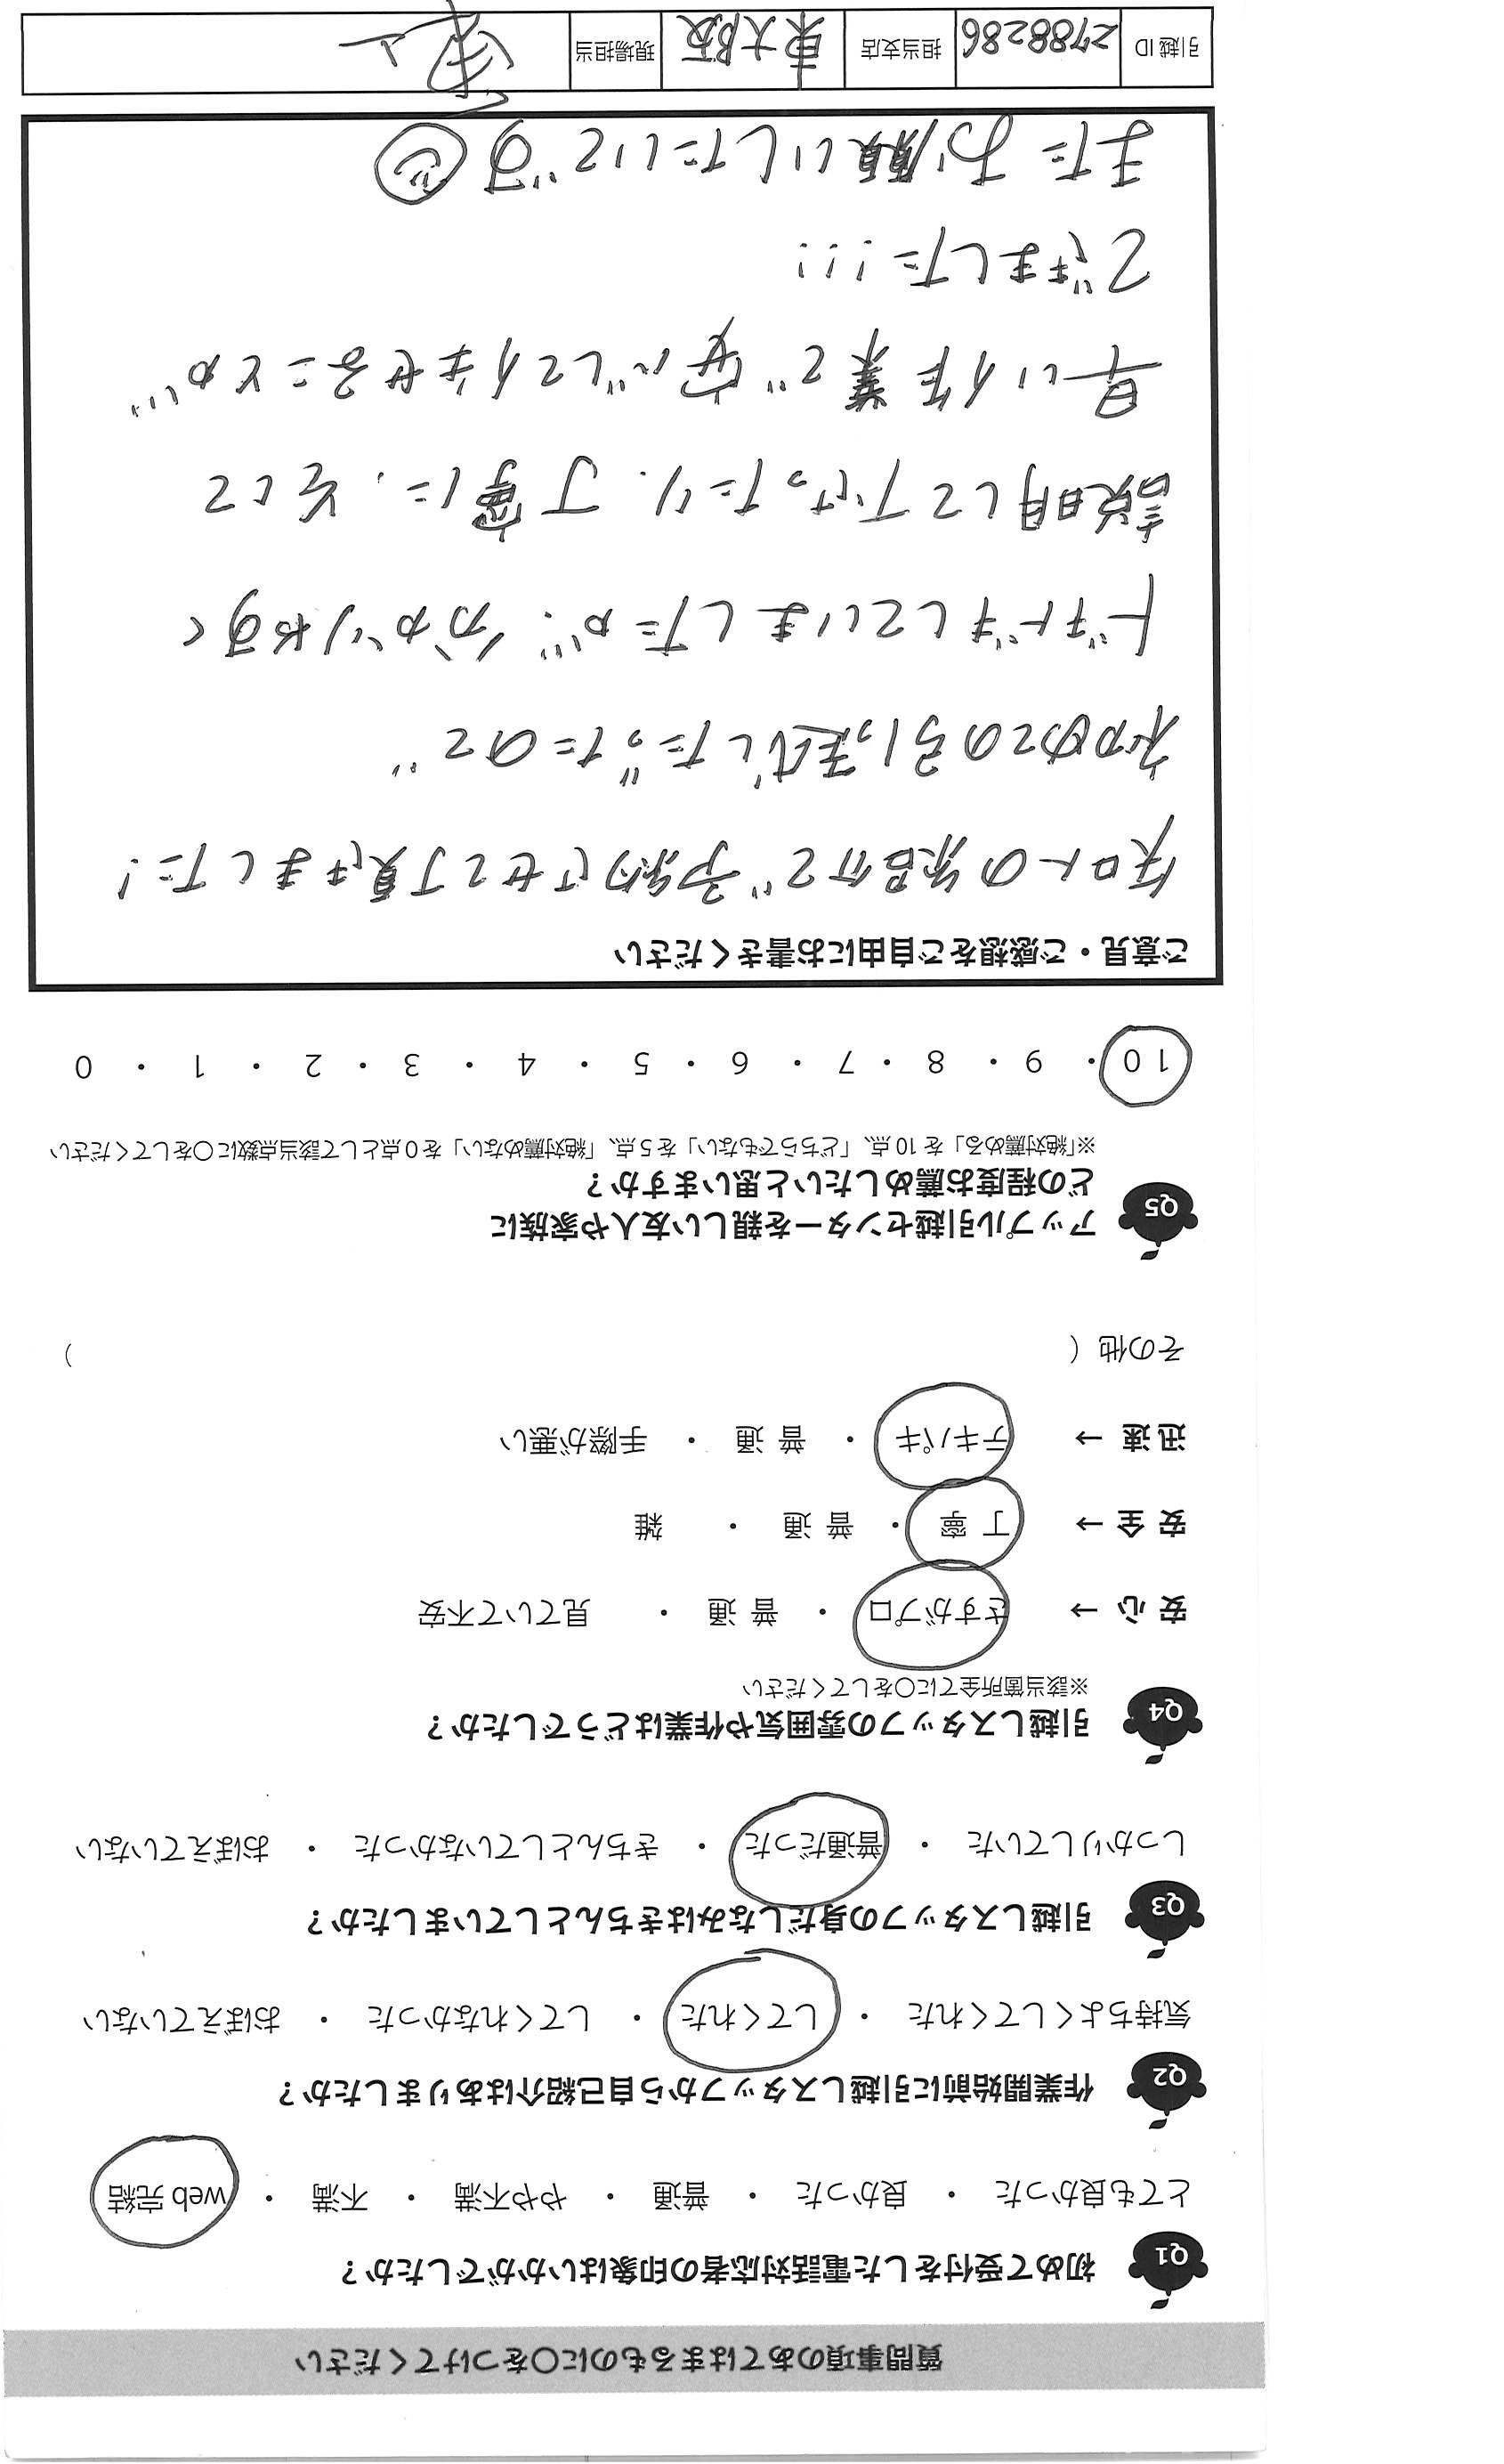 質問事項のあてはまるものに○をつけてください
Q1 初めて受付をした電話対応者の印象はいかがでしたか？
とても良かった ・ 良かった ・ 普通 ・ やや不満 ・ 不満 ・ web 完結
Q2 作業開始前に引越しスタッフから自己紹介はありましたか？
気持ちよくしてくれた ・ してくれた ・ してくれなかった ・ おぼえていない
Q3 引越しスタッフの身だしなみはきちんとしていましたか？
しっかりしていた ・ 普通だった ・ きちんとしていなかった ・ おぼえていない
Q4 引越しスタッフの雰囲気や作業はどうでしたか？
※該当箇所全てに○をしてください
安 心 → さすがプロ ・ 普 通 ・ 見ていて不安
安 全 → 丁 寧 ・ 普 通 ・ 雑
迅 速 → テキパキ ・ 普 通 ・ 手際が悪い
その他（ ）
Q5 アップル引越センターを親しい友人や家族に
どの程度お薦めしたいと思いますか？
※「絶対薦める」を 10 点、「どちらでもない」を 5 点、「絶対薦めない」を 0 点として該当点数に○をしてください
10 ・ 9 ・ 8 ・ 7 ・ 6 ・ 5 ・ 4 ・ 3 ・ 2 ・ 1 ・ 0
ご意見・ご感想をご自由にお書きください
知人の紹介で予約させて頂きました！
初めての引っ越しだったので
ドギドギしていましたが、分かりやすく
説明して下さったり、丁寧に、そして
早い作業で安心して任せることが
できました!!!
またお願いしたいです
引越 ID 2788286 担当支店 東大阪 現場担当